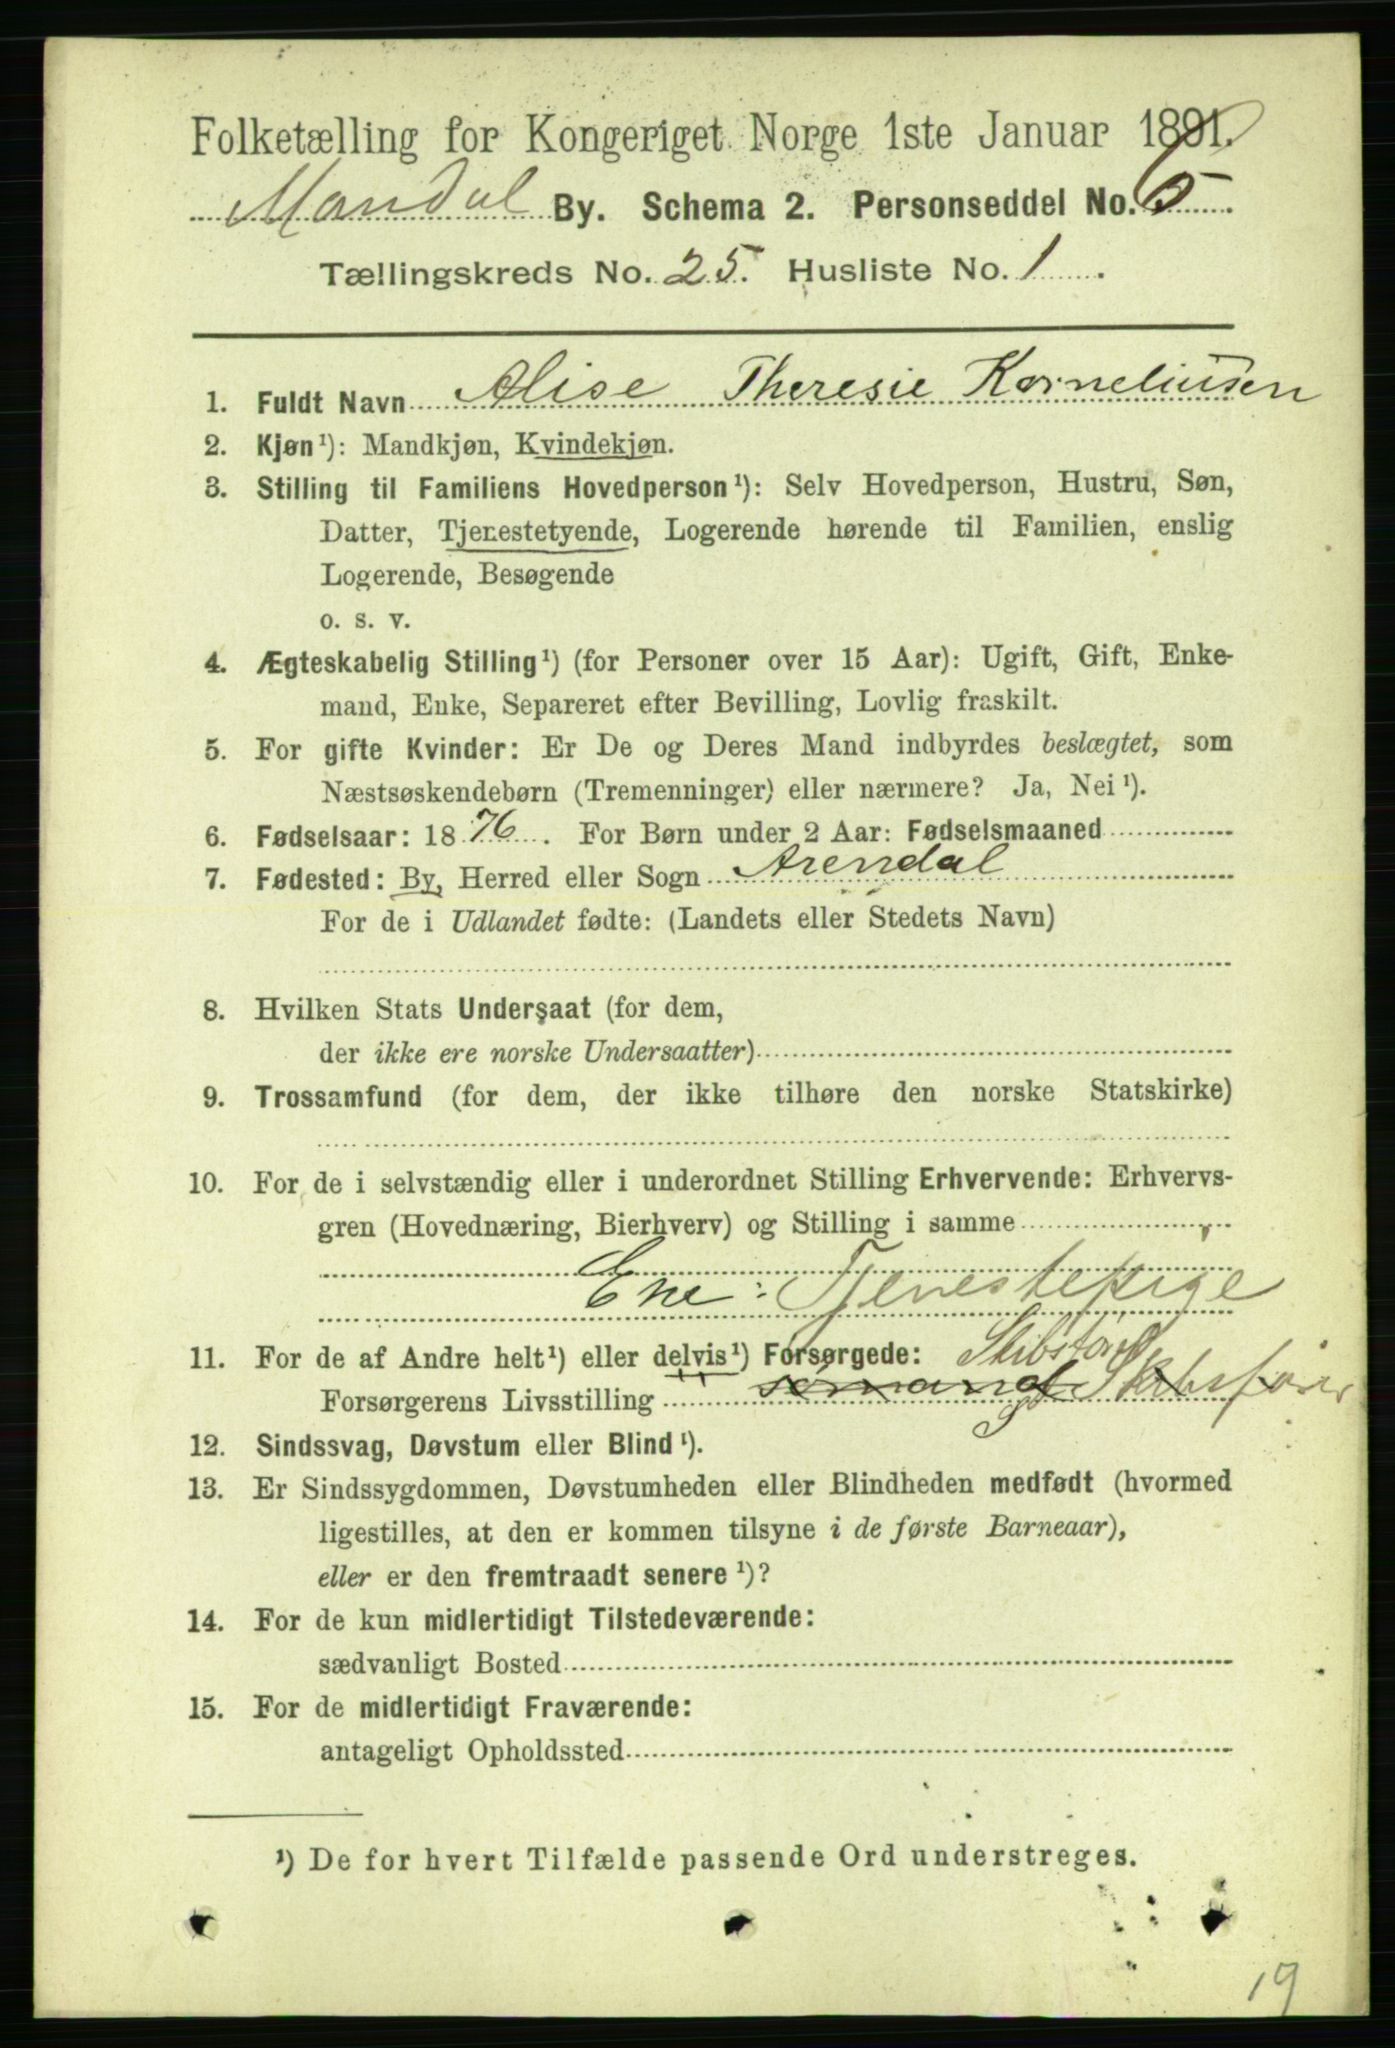 Folketælling for Kongeriget Norge 1ste Januar 1891.
Mandal By. Schema 2. Personseddel No. 5
Tællingskreds No. 25. Husliste No. 1.
1. Fuldt Navn Alise Theresie Korneliusen
2. Kjøn¹): Mandkjøn, Kvindekjøn.
3. Stilling til Familiens Hovedperson¹): Selv Hovedperson, Hustru, Søn,
Datter, Tjenestetyende, Logerende hørende til Familien, enslig
Logerende, Besøgende
o. s. v.
4. Ægteskabelig Stilling¹) (for Personer over 15 Aar): Ugift, Gift, Enke-
mand, Enke, Separeret efter Bevilling, Lovlig fraskilt.
5. For gifte Kvinder: Er De og Deres Mand indbyrdes beslægtet, som
Næstsøskendebørn (Tremenninger) eller nærmere? Ja, Nei¹).
6. Fødselsaar: 1876. For Børn under 2 Aar: Fødselsmaaned
7. Fødested: By, Herred eller Sogn Arendal
For de i Udlandet fødte: (Landets eller Stedets Navn)
8. Hvilken Stats Undersaat (for dem,
der ikke ere norske Undersaatter)
9. Trossamfund (for dem, der ikke tilhøre den norske Statskirke)
10. For de i selvstændig eller i underordnet Stilling Erhvervende: Erhvervs-
gren (Hovednæring, Bierhverv) og Stilling i samme
Ene: Tjenestepige
11. For de af Andre helt¹) eller delvis¹) Forsørgede:
Forsørgerens Livsstilling sømand Skibsfører
12. Sindssvag, Døvstum eller Blind¹).
13. Er Sindssygdommen, Døvstumheden eller Blindheden medfødt (hvormed
ligestilles, at den er kommen tilsyne i de første Barneaar),
eller er den fremtraadt senere¹)?
14. For de kun midlertidigt Tilstedeværende:
sædvanligt Bosted
15. For de midlertidigt Fraværende:
antageligt Opholdssted
¹) De for hvert Tilfælde passende Ord understreges.
19